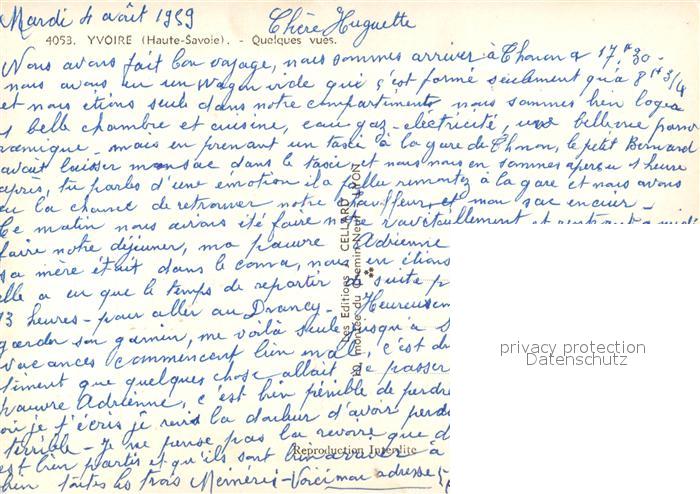 Mardi 4 août 1959 Chère Huguette
4053. YVOIRE (Haute-Savoie). - Quelques vues.
Nous avons fait bon voyage, nous sommes arrivés à Thonon à 17h30 -
nous avons eu un wagon vide qui s'est formé seulement qu'à 8h3/4
et nous étions seule dans notre compartiments nous sommes bien logés
1 belle chambre et cuisine, eau gaz - electricité, une belle vue pano
ramique - mais en prenant un taxi à la gare de Thonon, le petit Bernard
avait laisser mon sac dans le taxi et nous nous en sommes aperçu 1 heure
après, tu parles d'une émotion il a fallu remonter à la gare et nous avons
eu la chance de retrouver notre chauffeur, et mon sac encore -
Ce matin nous avons été faire notre ravitaillement et rentrant à midi
faire notre déjeuner, ma pauvre Adrienne
sa mère était dans le coma, nous en étions
elle a eu que le temps de repartir de suite p
13 heures - pour aller au Drancy - Heureusem
garder son gamin, me voilà seule jusqu'à s
vacances commencent bien mal, c'est dr
timent que quelques chose allait se passer
pauvre Adrienne, c'est bien pénible de perdre
où je t'écris je revis la douleur d'avoir perdu
terrible - Je ne pense pas la revoir que d
est bien partis et qu'ils sont bien arriver à
bien toutes les trois Voici mon adresse
Les Editions CELLARD - LYON
10, montée du Chemin-Neuf
Reproduction Interdite
privacy protection
Datenschutz